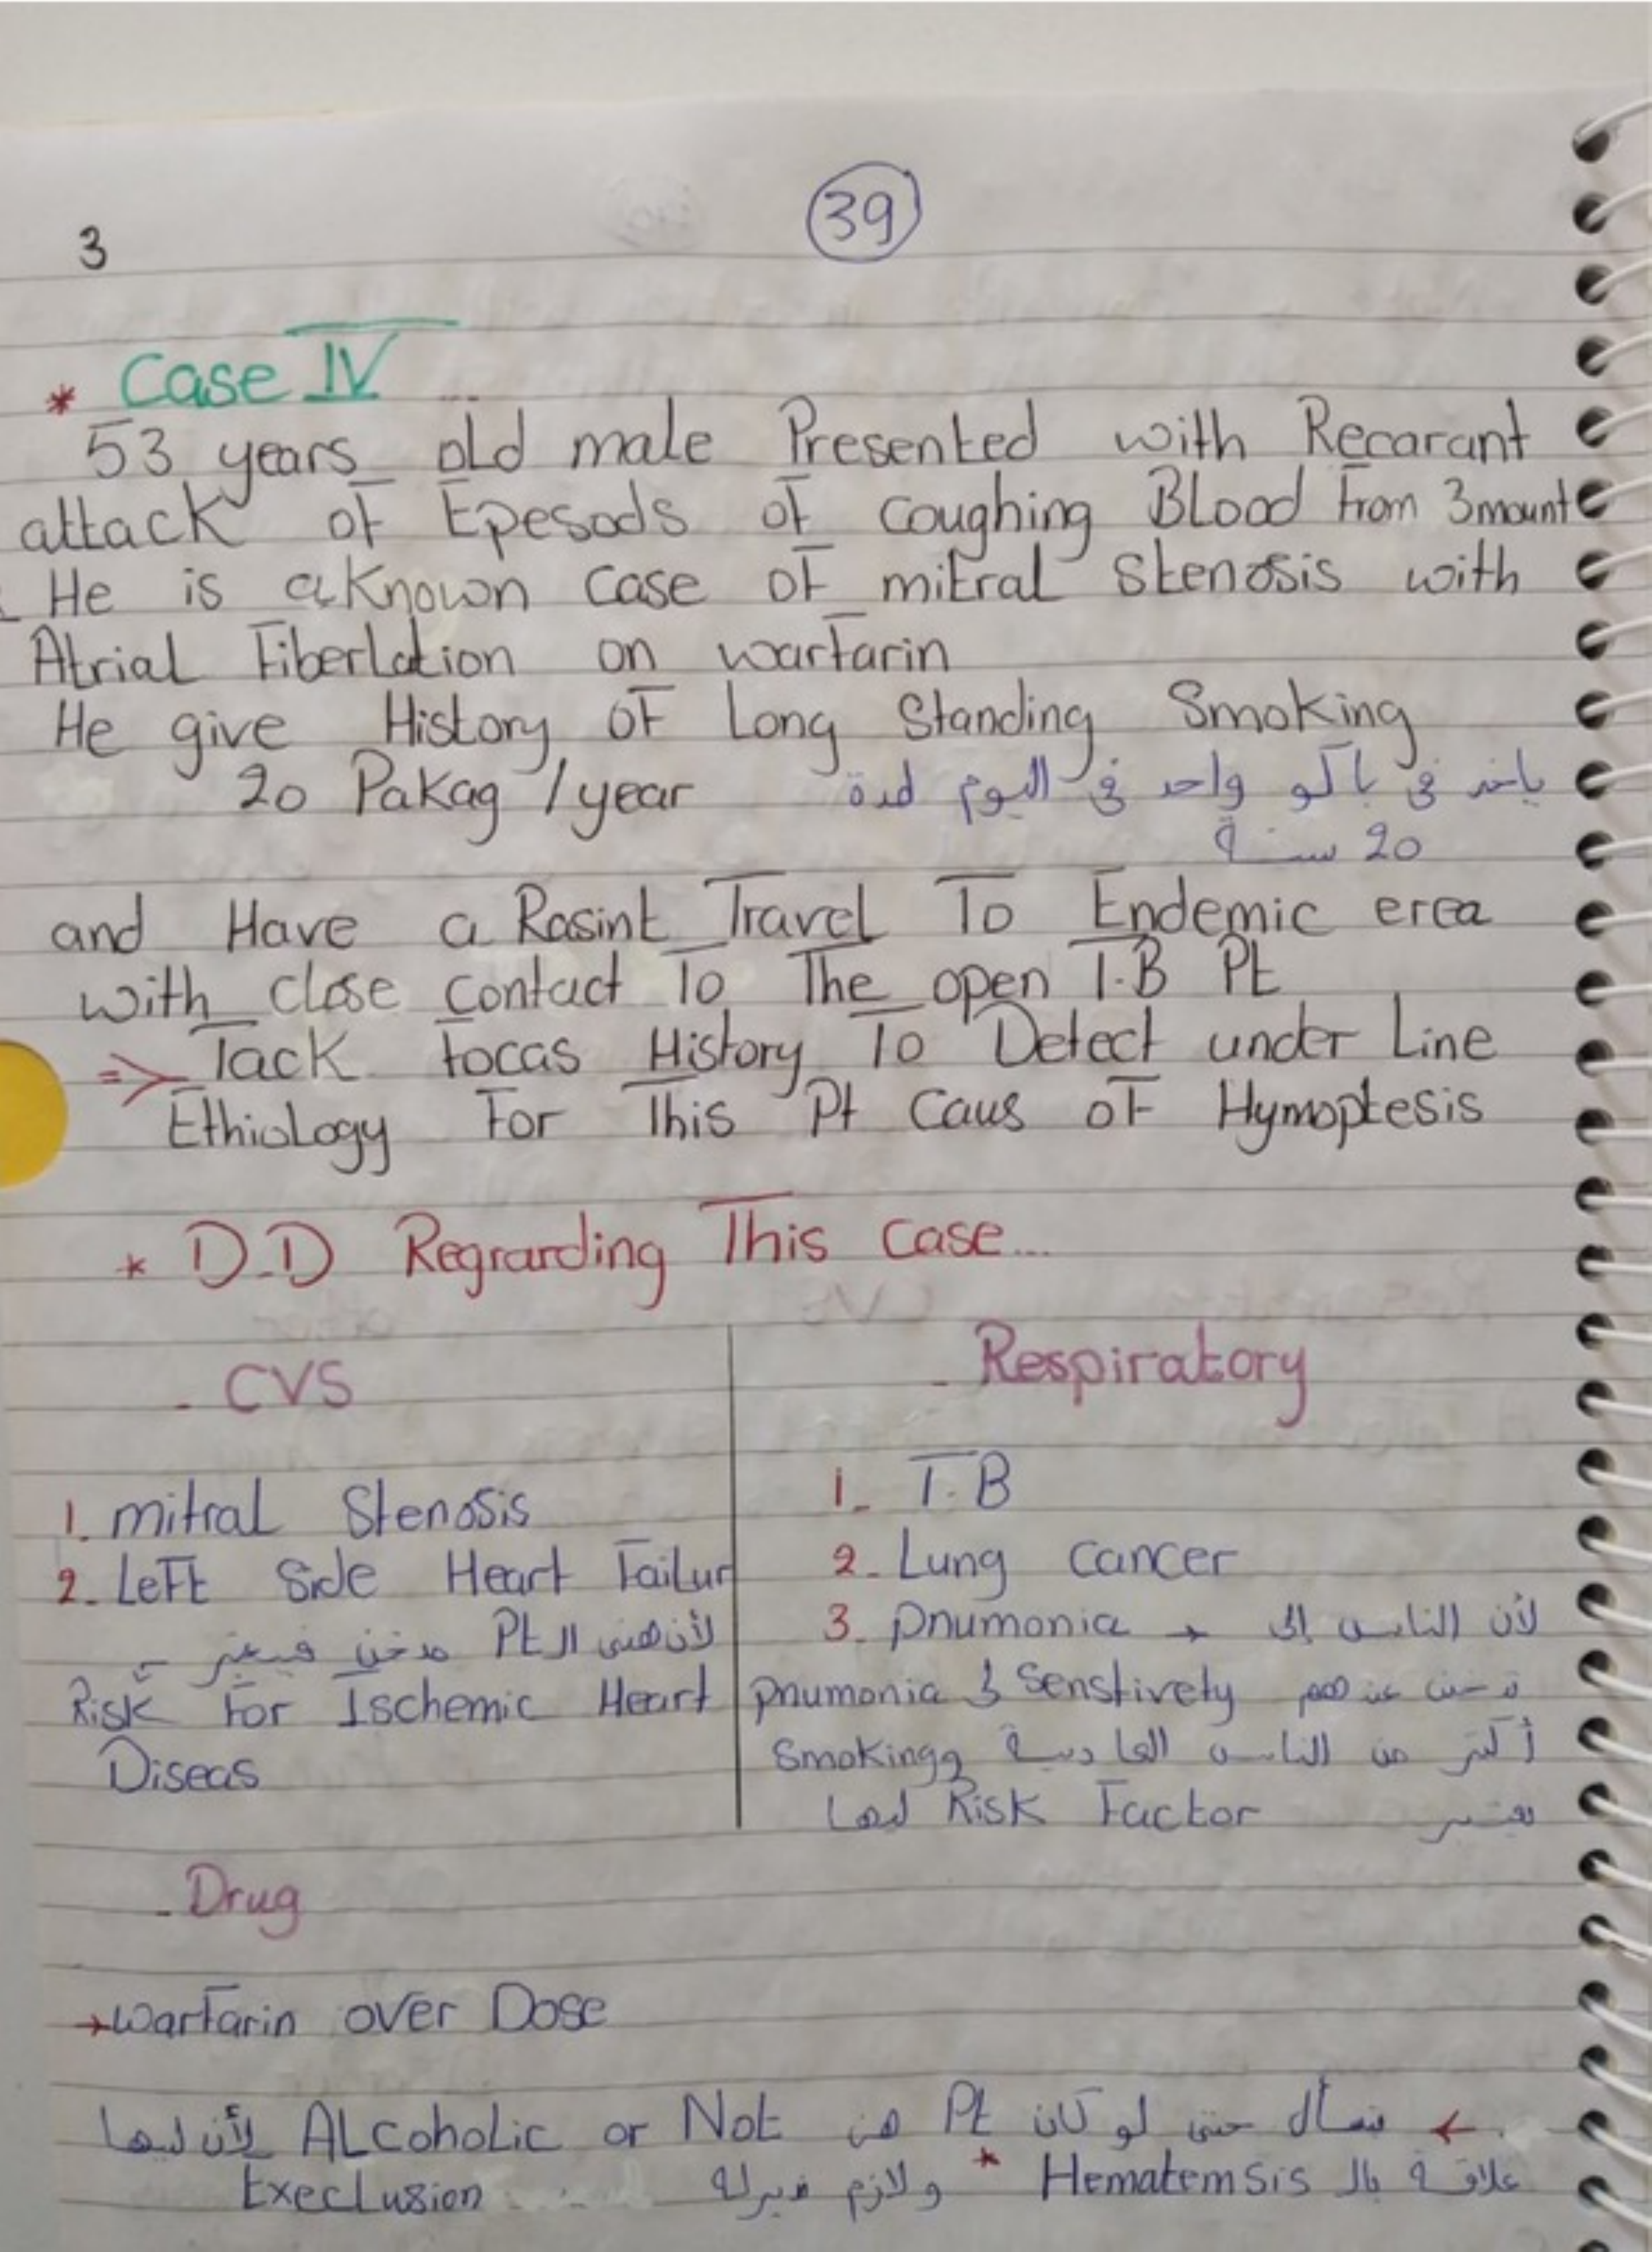 39
3
* Case IV ...
53 years old male Presented with Recarant
attack of Epesods of coughing Blood From 3 mount
He is a Known case of mitral stenosis with
Atrial Fiberlation on warfarin
He give History of Long Standing Smoking
20 Pakag / year ياخد في باكو واحد في اليوم لمدة
20 سنة
and Have a Rasint Travel To Endemic erea
with close contact To The open T.B Pt
=> Tack focas History To Detect under Line
Ethiology For This Pt Caus of Hymoptesis
* D.D Regrarding This case...
- CVS
1. mitral Stenosis
2. Left Side Heart Failur
لأن هني ال Pt مدخن فيعتبر
Risk For Ischemic Heart
Diseas
- Respiratory
1. T.B
2. Lung cancer
3. pnumonia → لأن الناس إلي
تدخن عندهم Senstivety لـ pnumonia
أكتر من الناس العادية و Smoking
يعتبر Risk Factor ليها
- Drug
→ warfarin over Dose
← نسأل حتى لو كان Pt هن ALcoholic or Not لأن ليها
علاقة بال Hematemsis * ولازم نديرله Execlusion